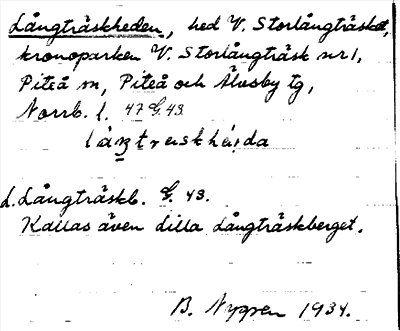 Långträskheden, hed V. Storlångträsket,
kronoparken V. Storlångträsk nr 1,
Piteå sn, Piteå och Älvsby tg,
Norrb. l. 47 G. 43.
L. Långträskb. G. 43.
Kallas även Lilla Långträskberget.
B. Nygren 1934.